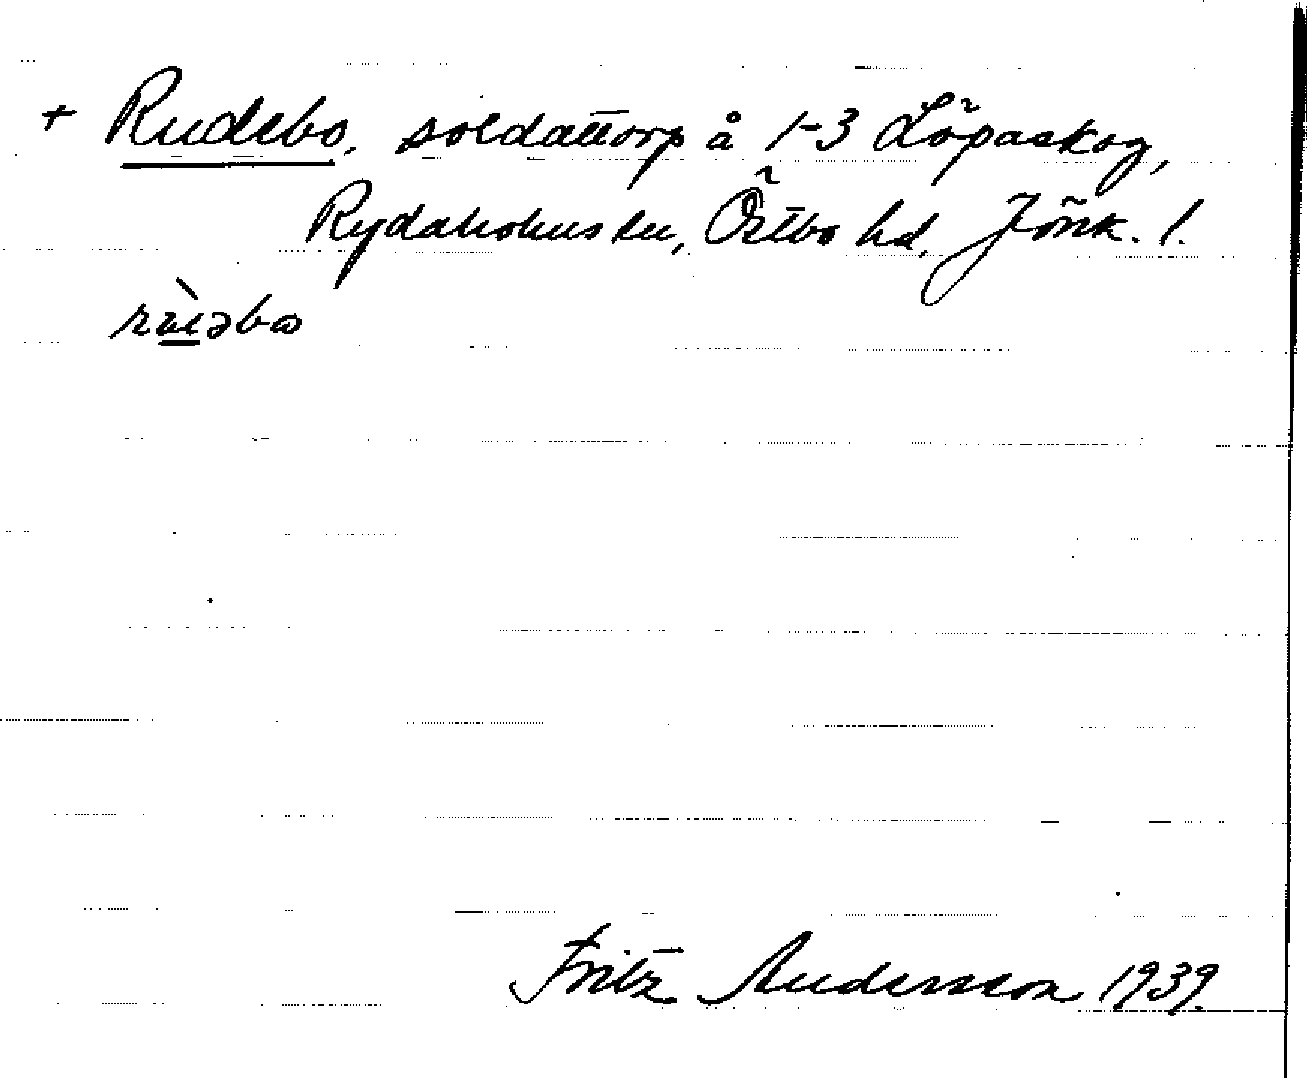 + Rudebo, soldattorp å 1-3 Löpaskog,
Rydaholms sn, Östbo hd, Jönk. l.
Fritz Andersson 1939.